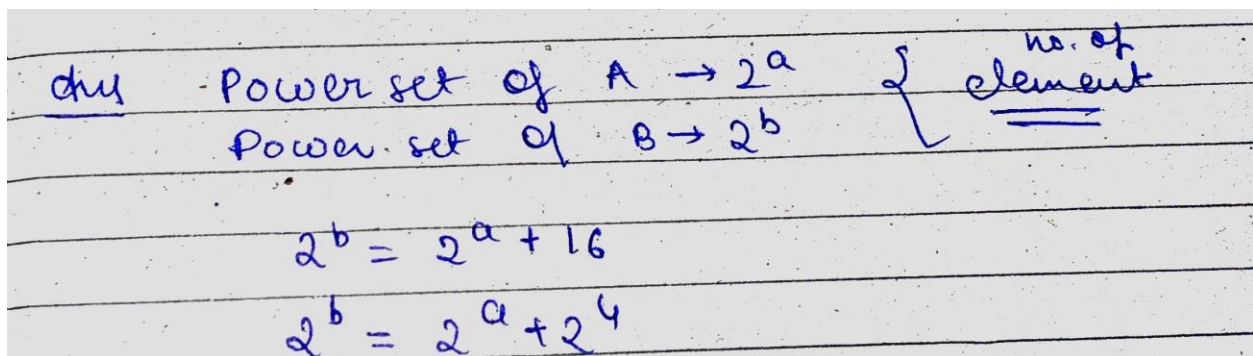 Ans Power set of A → 2^a { no. of element
Power set of B → 2^b
2^b = 2^a + 16
2^b = 2^a + 2^4